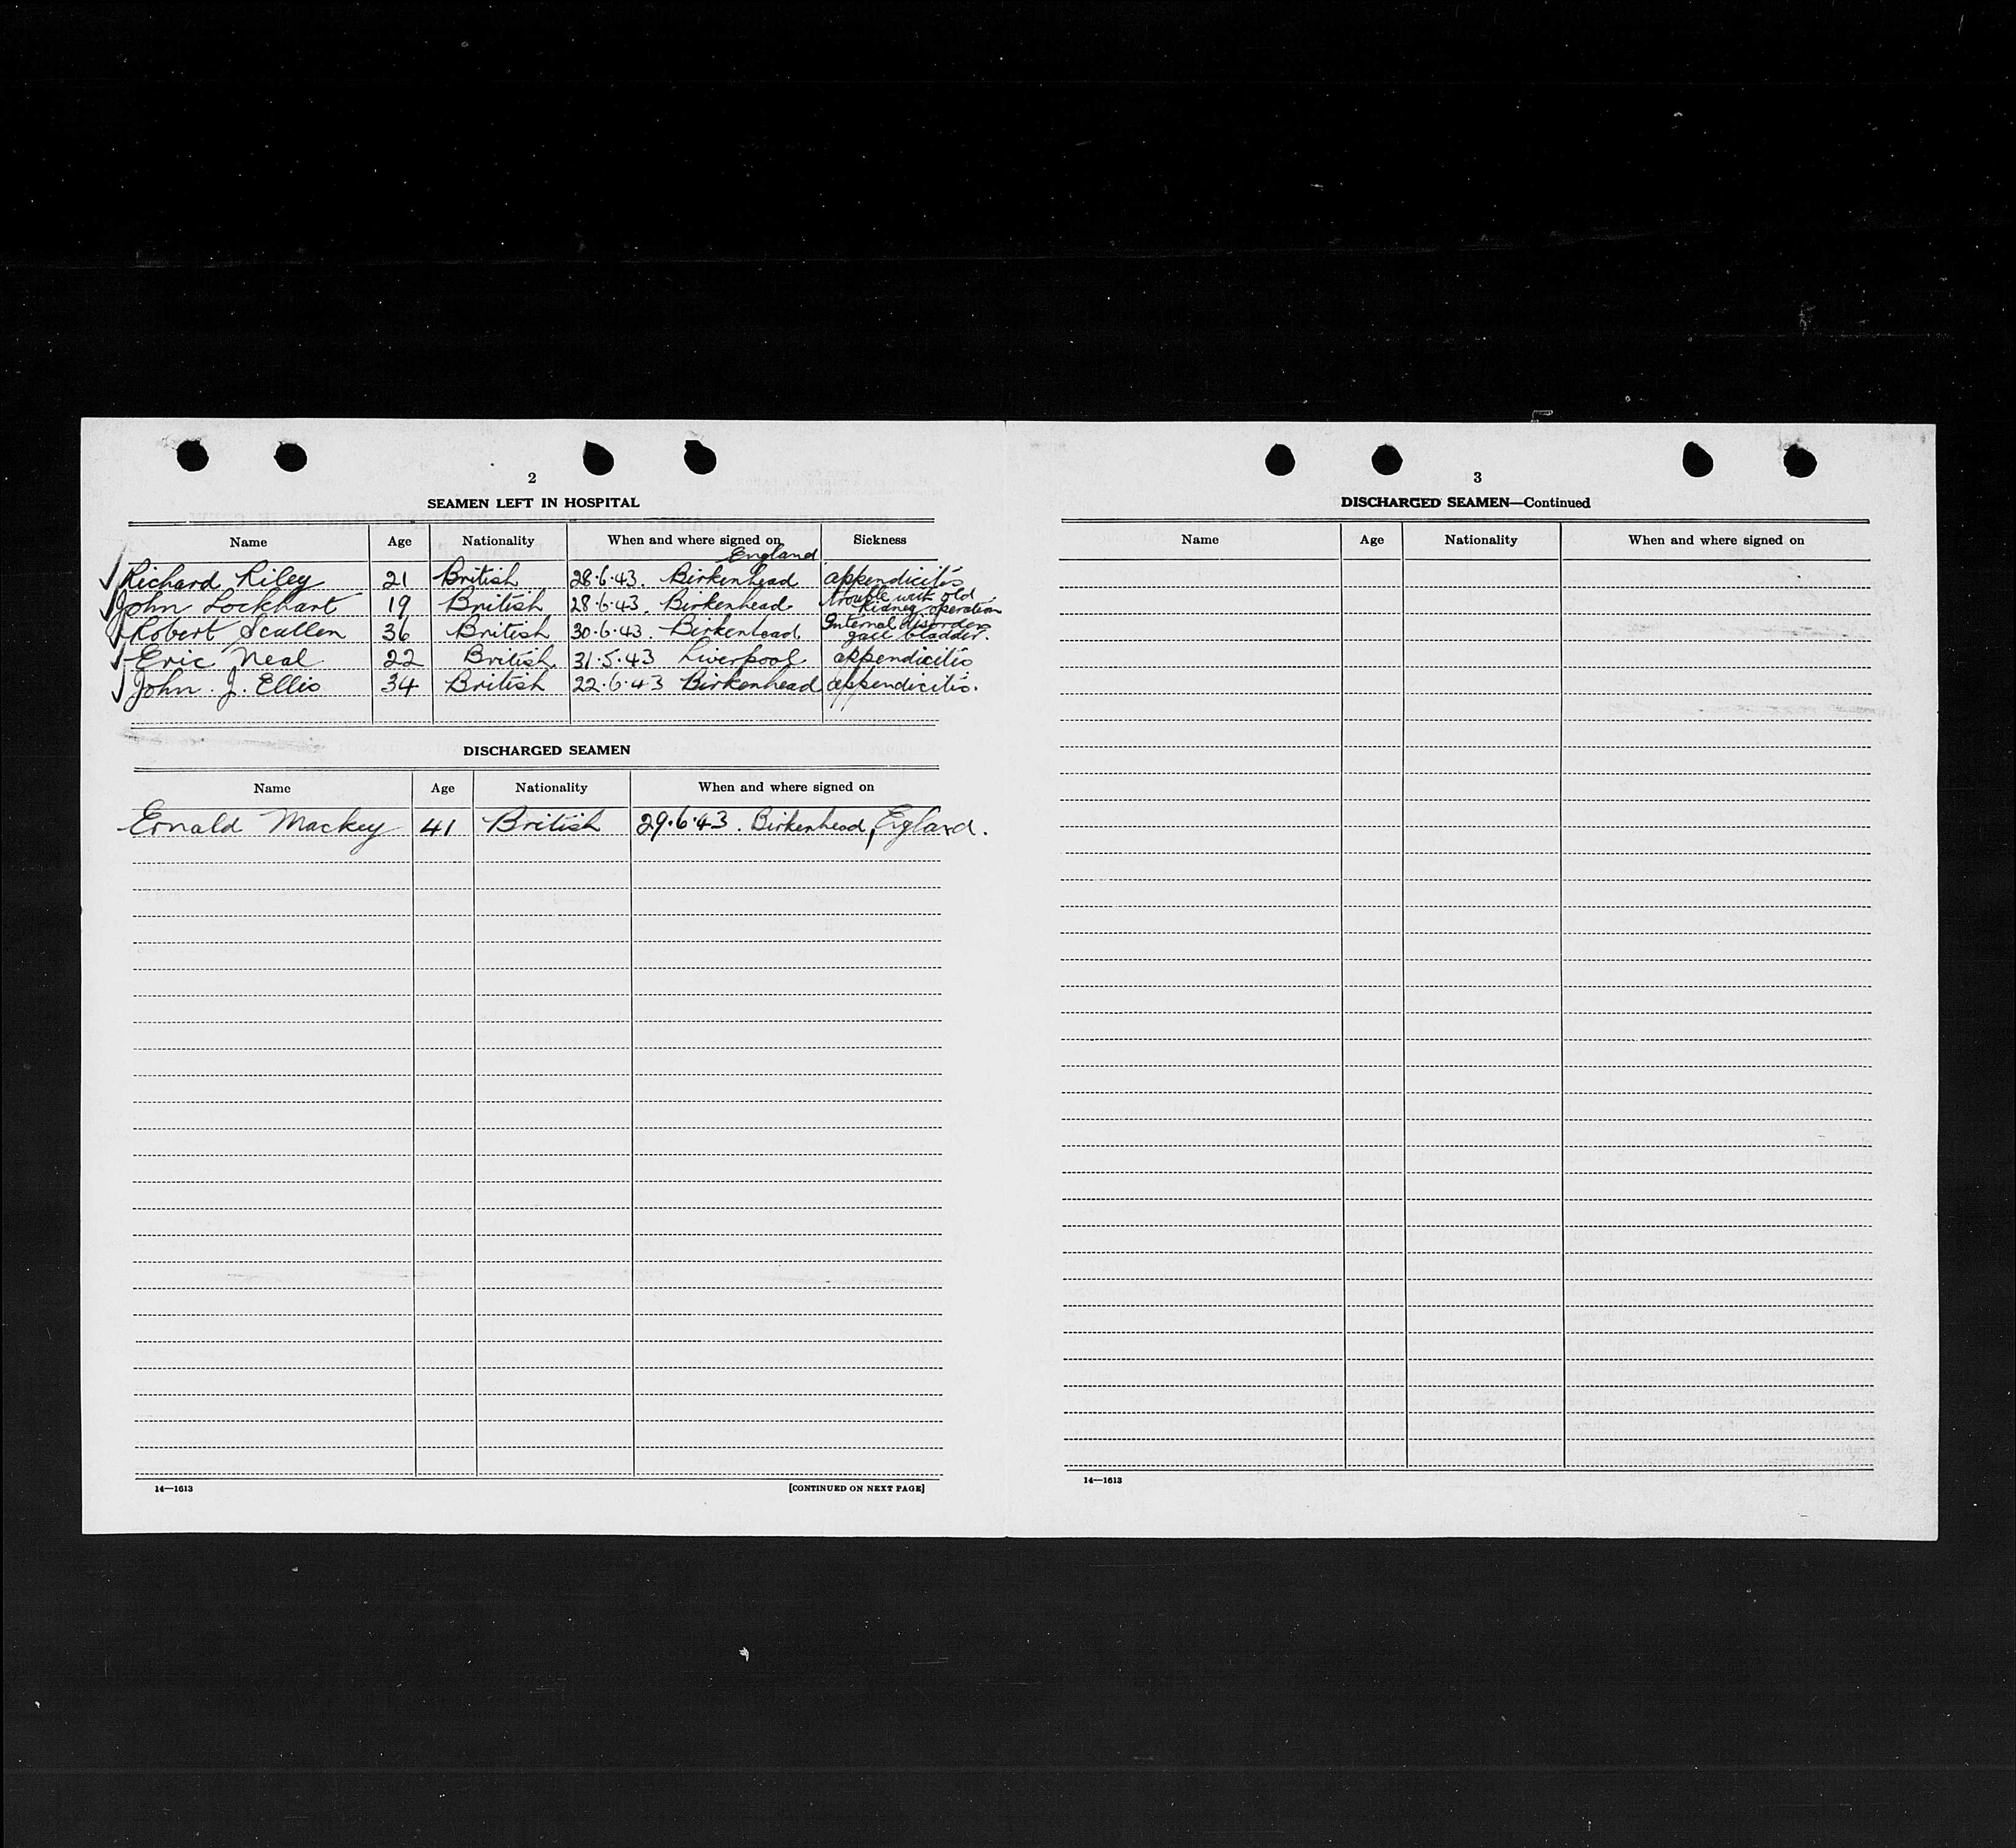 2
SEAMEN LEFT IN HOSPITAL
Name Age Nationality When and where signed on Sickness
England
Richard Riley 21 British 28.6.43. Birkenhead appendicitis
John Lockhart 19 British 28.6.43. Birkenhead trouble with old
kidney operation
Robert Scullen 36 British 30.6.43. Birkenhead Internal disorders
gall bladder.
Eric Neal 22 British 31.5.43 Liverpool appendicitis
John. J. Ellis 34 British 22.6.43 Birkenhead appendicitis.
DISCHARGED SEAMEN
Name Age Nationality When and where signed on
Ernald Mackey 41 British 29.6.43. Birkenhead, England.
14—1613 [CONTINUED ON NEXT PAGE]
3
DISCHARGED SEAMEN—Continued
Name Age Nationality When and where signed on
14—1613